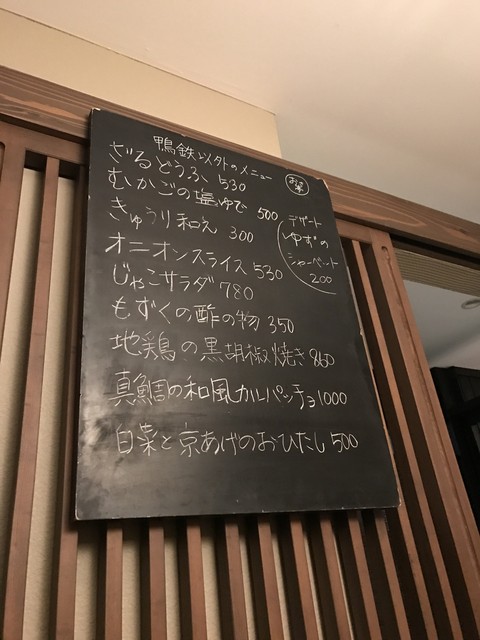 鴨鉄以外のメニュー
お菜
ざるどうふ 530
むかごの塩ゆで 500
きゅうり和え 300
オニオンスライス 530
じゃこサラダ 780
もずくの酢の物 350
地鶏の黒胡椒焼き 860
真鯛の和風カルパッチョ 1000
白菜と京あげのおひたし 500
デザート
ゆずの
シャーベット
200